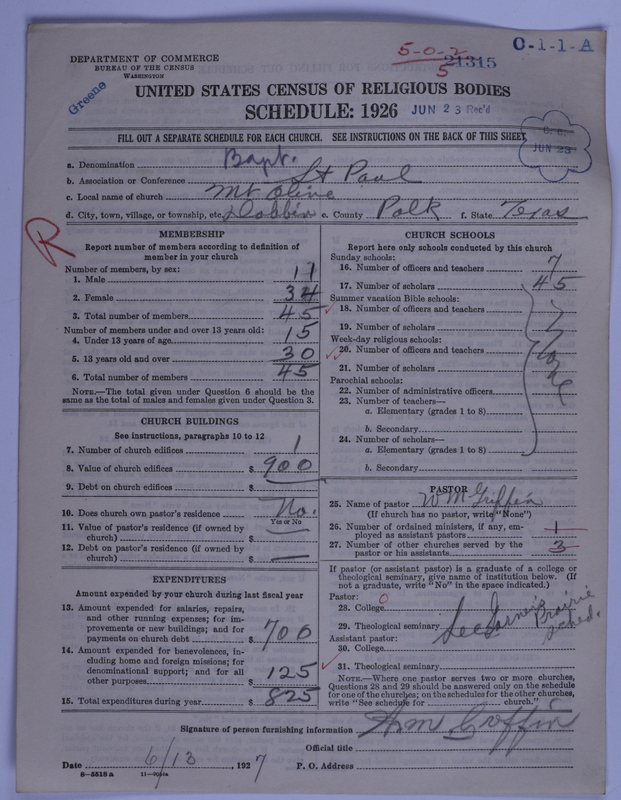 5-0-2
5
21315
O-1-1-A
DEPARTMENT OF COMMERCE
BUREAU OF THE CENSUS
WASHINGTON
Greene
UNITED STATES CENSUS OF RELIGIOUS BODIES
SCHEDULE: 1926 JUN 23 Rec'd
FILL OUT A SEPARATE SCHEDULE FOR EACH CHURCH. SEE INSTRUCTIONS ON THE BACK OF THIS SHEET
JUN 23
a. Denomination Bapt.
b. Association or Conference St Paul
c. Local name of church Mt Olive
d. City, town, village, or township, etc. Dobbin e. County Polk f. State Texas
R
MEMBERSHIP
Report number of members according to definition of
member in your church
Number of members, by sex:
1. Male 11
2. Female 34
3. Total number of members 45
Number of members under and over 13 years old:
4. Under 13 years of age 15
5. 13 years old and over 30
6. Total number of members 45
NOTE.—The total given under Question 6 should be
same as the total of males and females given under Question 3.
CHURCH BUILDINGS
See instructions, paragraphs 10 to 12
7. Number of church edifices 1
8. Value of church edifices $ 900
9. Debt on church edifices $
10. Does church own pastor's residence No.
Yes or No
11. Value of pastor's residence (if owned by
church) $
12. Debt on pastor's residence (if owned by
church) $ —
EXPENDITURES
Amount expended by your church during last fiscal year
13. Amount expended for salaries, repairs,
and other running expenses; for im-
provements or new buildings; and for
payments on church debt $ 700
14. Amount expended for benevolences, in-
cluding home and foreign missions; for
denominational support; and for all
other purposes $ 125
15. Total expenditures during year $ 825
CHURCH SCHOOLS
Report here only schools conducted by this church
Sunday schools:
16. Number of officers and teachers 7
17. Number of scholars 45
Summer vacation Bible schools:
18. Number of officers and teachers
19. Number of scholars
Week-day religious schools:
20. Number of officers and teachers
21. Number of scholars
None
Parochial schools:
22. Number of administrative officers
23. Number of teachers—
a. Elementary (grades 1 to 8)
b. Secondary
24. Number of scholars—
a. Elementary (grades 1 to 8)
b. Secondary
PASTOR
25. Name of pastor W M Griffin
(If church has no pastor, write "None")
26. Number of ordained ministers, if any, em-
ployed as assistant pastors 1
27. Number of other churches served by the
pastor or his assistants 3
If pastor (or assistant pastor) is a graduate of a college or
theological seminary, give name of institution below. (If
not a graduate, write "No" in the space indicated.)
Pastor: 0
28. College
29. Theological seminary Prairie
Assistant pastor:
30. College
31. Theological seminary
NOTE.—Where one pastor serves two or more churches,
Questions 28 and 29 should be answered only on the schedule
for one of the churches; on the schedules for the other churches,
write "See schedule for church."
Signature of person furnishing information Wm Griffin
Official title
Date 6/13, 1927 P. O. Address
8—5518a 11—9051a